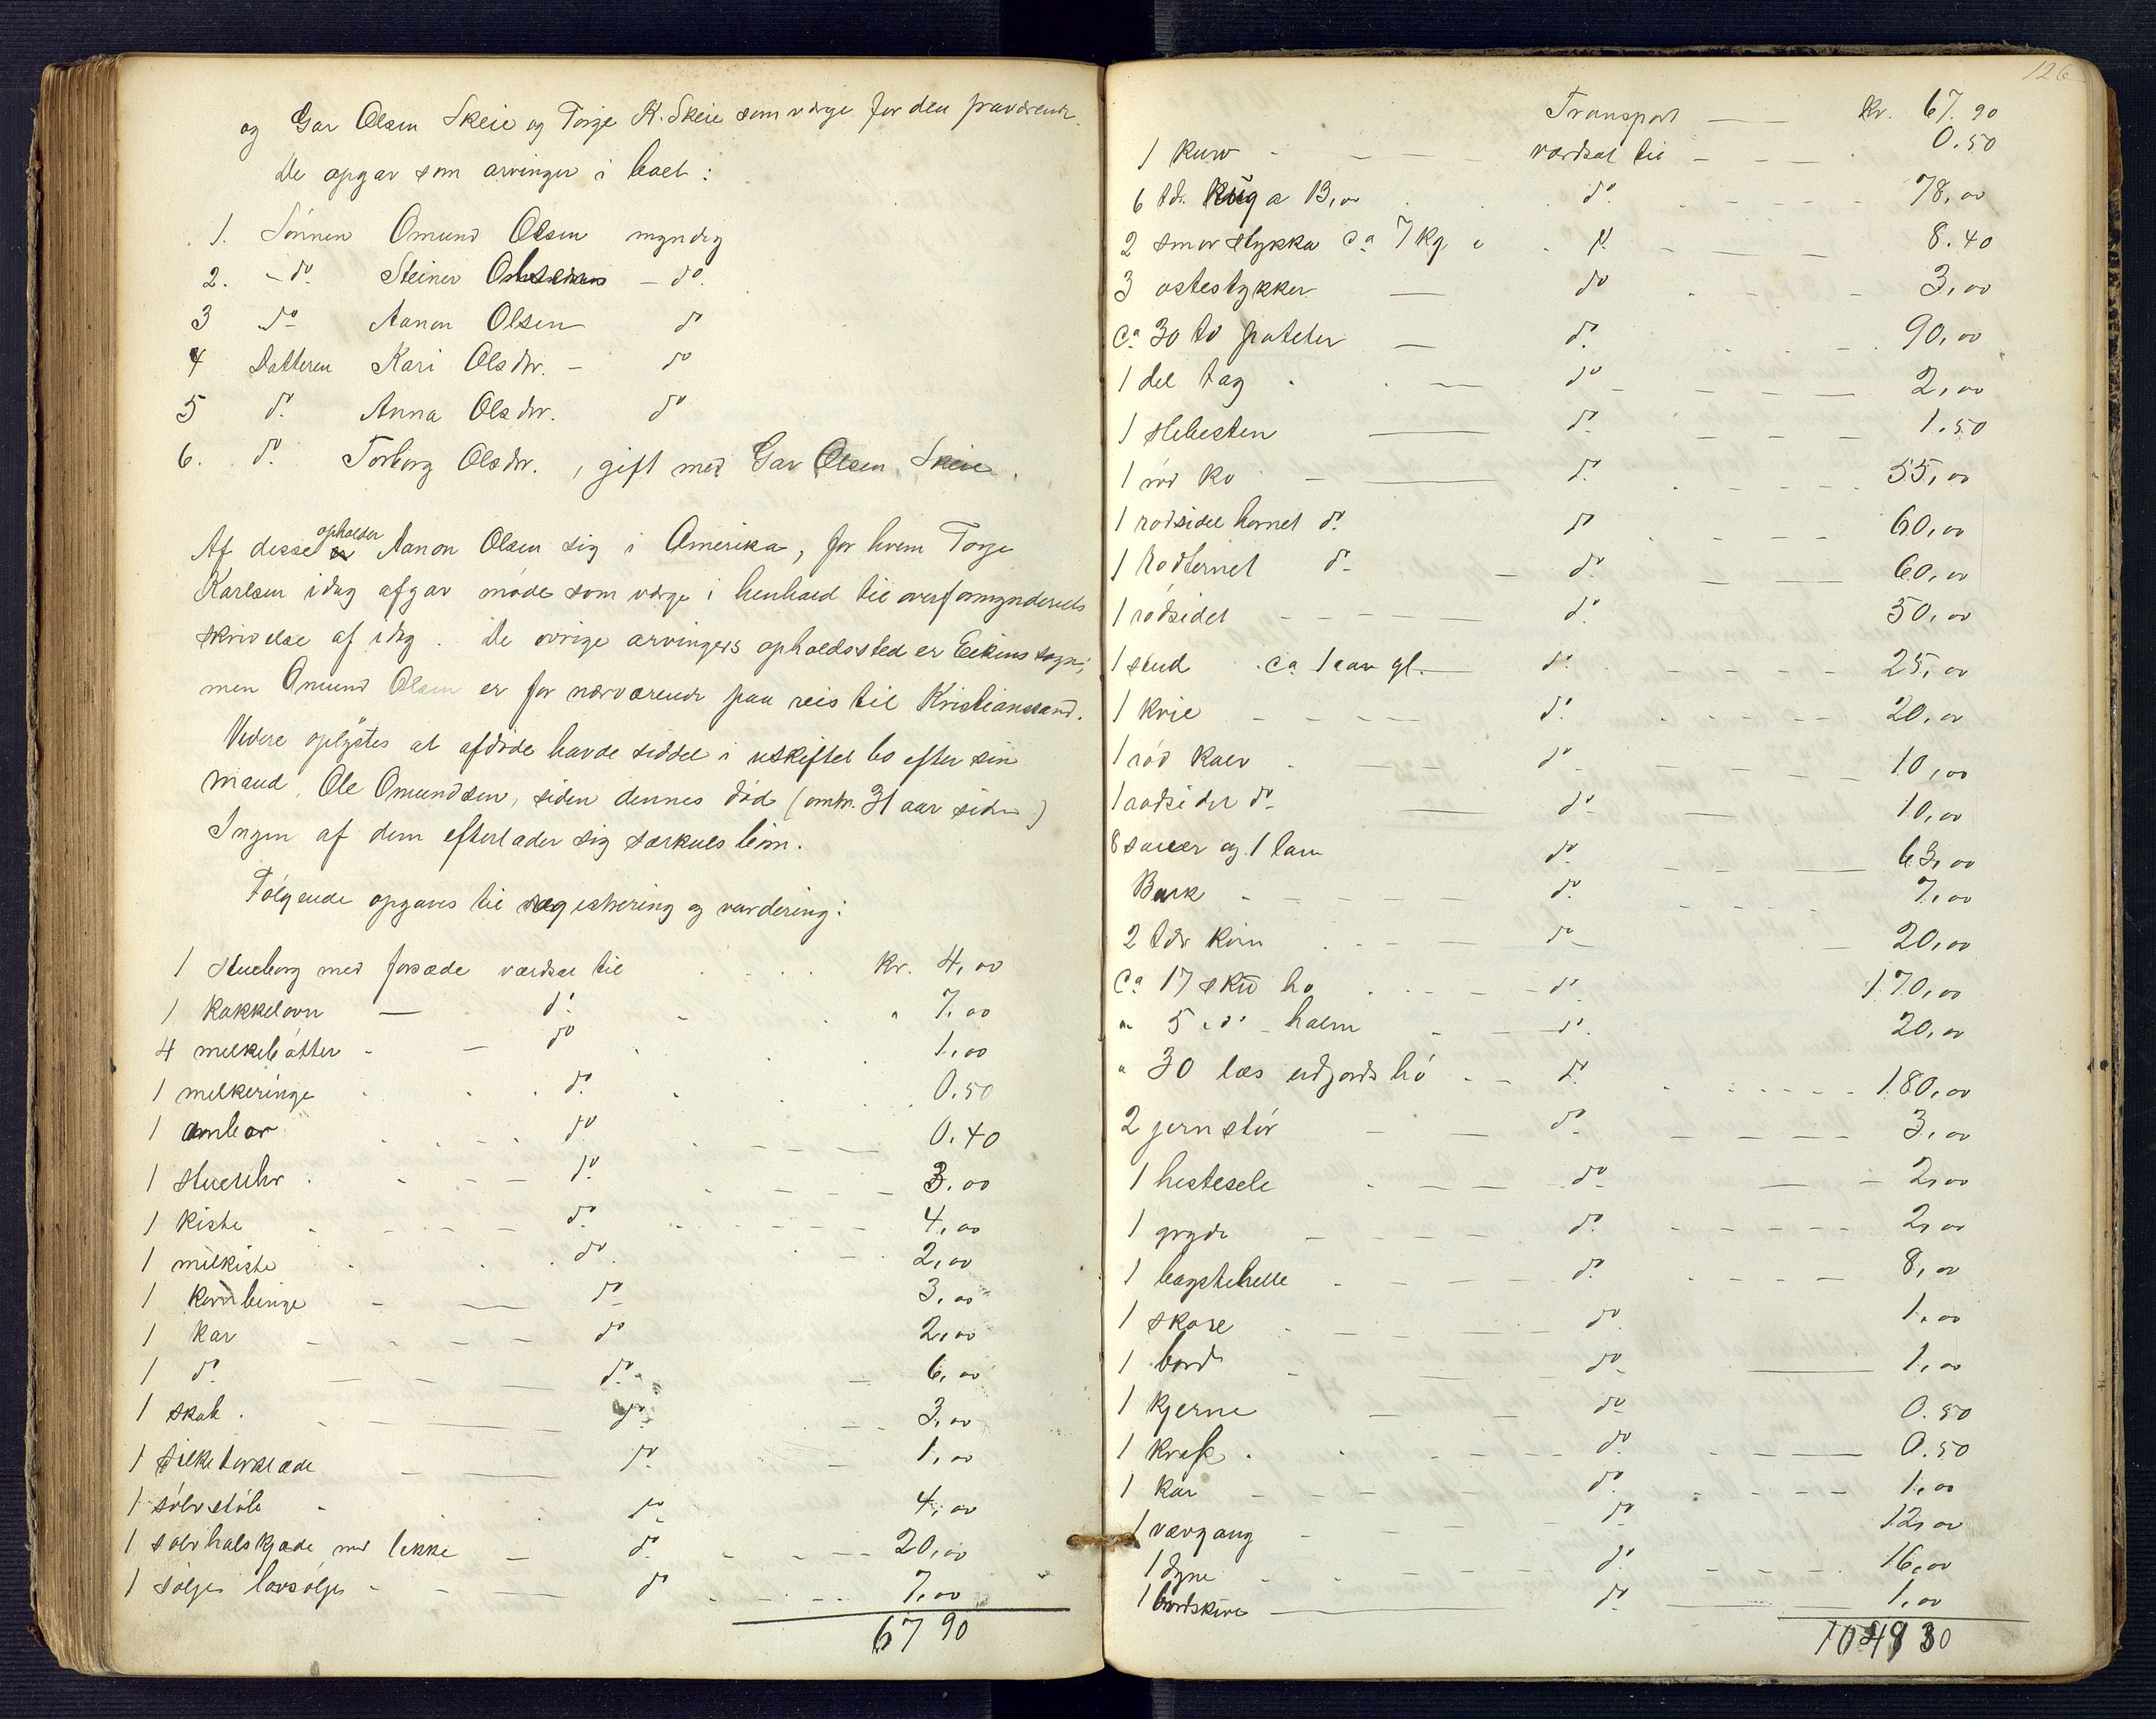 og Gar Olsen Skeie og Torge K. Skeie som værge for den fraværende.
De opgav som arvinger i boet:
1. Sönnen Omund Olsen myndig
2. – do. Steiner Olsen – do.
3 do Aanon Olsen do
4 Datteren Kari Olsdtr. – do
5 do. Anna Olsdtr. do
6. do. Torborg Olsdtr., gift med Gar Olsen Skeie.
Af disse opholder Aanon Olsen sig i Amerika, for hvem Torge
Karlsen idag afgav möde som værge i henhold til overformynderiets
skrivelse af idag. De øvrige arvingers opholdssted er Eikens sogn;
men Omund Olsen er for nærværende paa reis til Kristianssand.
Videre oplystes at afdöde havde siddet i uskiftet bo efter sin
mand, Ole Omundsen, siden dennes död (omtr. 31 aar siden)
Ingen af dem efterlader sig særkulsbörn.
Fölgende opgaves til registrering og vurdering:
1 stueborg med forsæde værdsat til kr. 4,00
1 kakkelovn — do. " 7,00
4 melkebötter - — do 1,00
1 melkeringe do. 0.50
1 ambar do 0,40
1 stueuhr do. 3.00
1 kiste do. 4,00
1 melkiste do 2,00
1 kornbinge - — do 3,00
1 kar do 2,00
1 do. do. 6,00
1 skab. do 3,00
1 silketörklæde do. 1,00
1 sölvstöle do 4,00
1 sölvhalskjæde med lekke — do. 20,00
1 sölje do 7,00
67 90
126
Transport — kr. 67.90
1 kurv - værdsat til 0.50
6 tdr. rug a 13,00 do. 78,00
2 smørstykker ca 7 kg do. 8.40
3 ostestykker — do 3,00
ca 30 td poteter — do. 90,00
1 del tag do 2,00
1 slibesten — do. 1.50
1 röd ko do. 55,00
1 rödsidet hornet do. do 60,00
1 rödternet do. – do. 60,00
1 rödsidet do. 50,00
1 stud ca 1 aar gl. do. 25,00
1 kvie do. 20,00
1 röd kalv do 10,00
1 rödsidet do. do. 10,00
8 sauer og 1 lam do. 63,00
Bark do. 7,00
2 tdr korn do. 20,00
ca 17 hö do. 170,00
" 5 do. halm do. 20,00
" 30 læs udjords hö do. 180,00
2 jernstör do. 3,00
1 hestesele do 2,00
1 gryde do. 2,00
1 bagstehelle do. 8,00
1 do 1,00
1 bord do 1,00
1 kjerne do 0.50
1 do. 0.50
1 kar do. 1,00
1 vævgang do 12,00
1 dyne do. 16,00
1 bordskive do 1,00